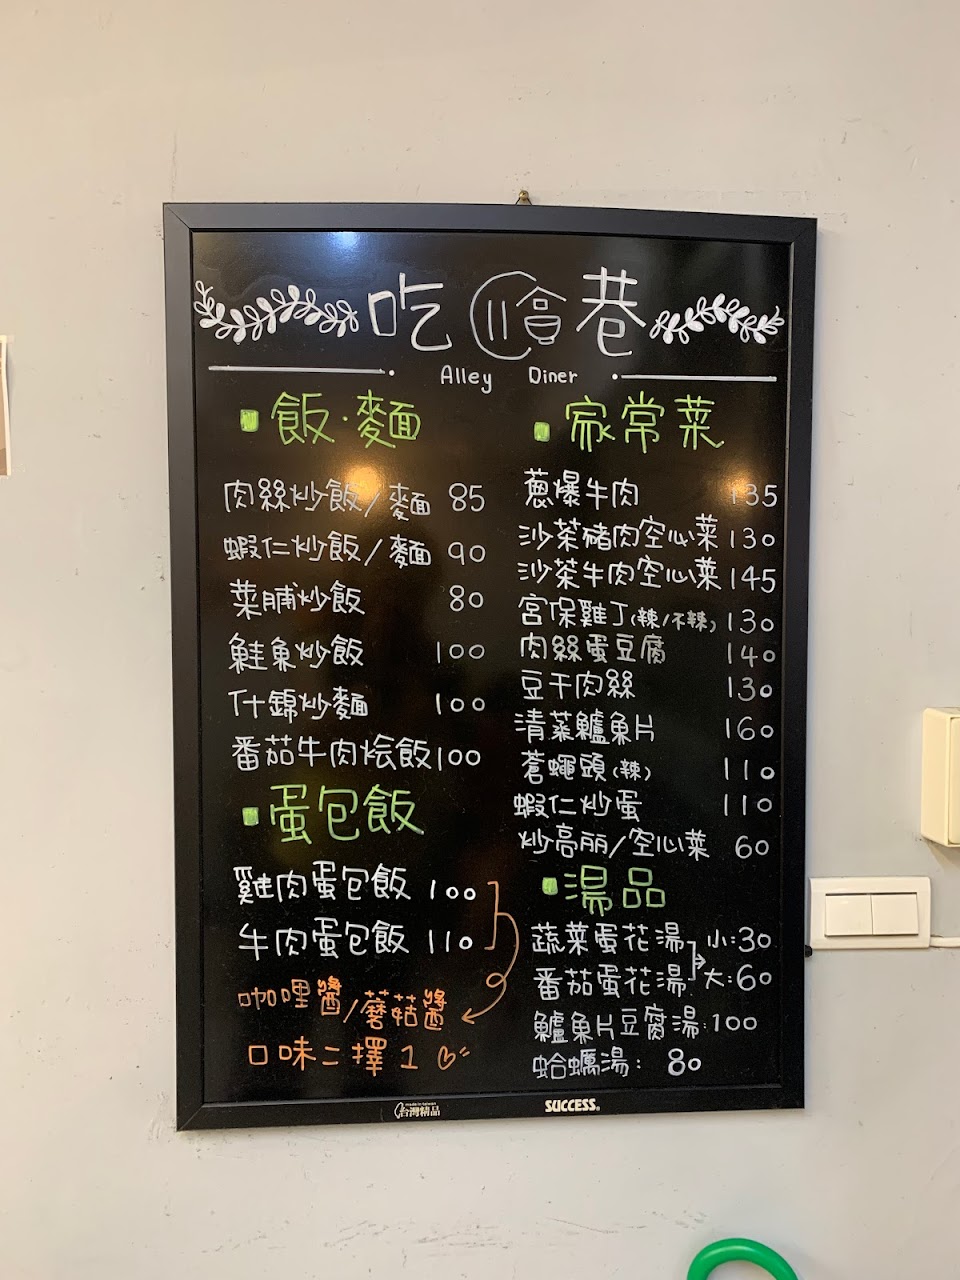 吃 巷
Alley Diner
飯·麵
肉絲炒飯/麵 85
蝦仁炒飯/麵 90
菜脯炒飯 80
鮭魚炒飯 100
什錦炒麵 100
番茄牛肉燴飯 100
蛋包飯
雞肉蛋包飯 100
牛肉蛋包飯 110
咖哩醬/蘑菇醬
口味二擇1
家常菜
蔥爆牛肉 135
沙茶豬肉空心菜 130
沙茶牛肉空心菜 145
宮保雞丁(辣/不辣) 130
肉絲蛋豆腐 140
豆干肉絲 130
清蒸鱸魚片 160
蒼蠅頭(辣) 110
蝦仁炒蛋 110
炒高丽/空心菜 60
湯品
蔬菜蛋花湯 小:30
番茄蛋花湯 大:60
鱸魚片豆腐湯:100
蛤蠣湯: 80
made in taiwan
台灣精品
SUCCESS